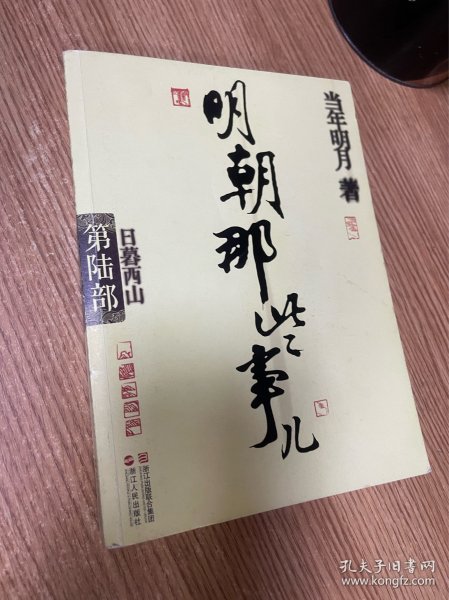 当年明月 著
明朝那些事儿
日暮西山
第陆部
浙江出版联合集团
浙江人民出版社
孔夫子旧书网
www.kongfz.com